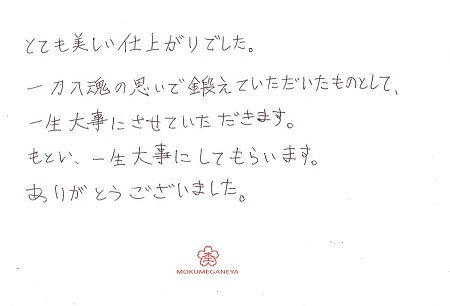 とても美しい仕上がりでした。
一刀入魂の思いで鍛えていただいたものとして、
一生大事にさせていただきます。
もとい、一生大事にしてもらいます。
ありがとうございました。
MOKUMEGANEYA